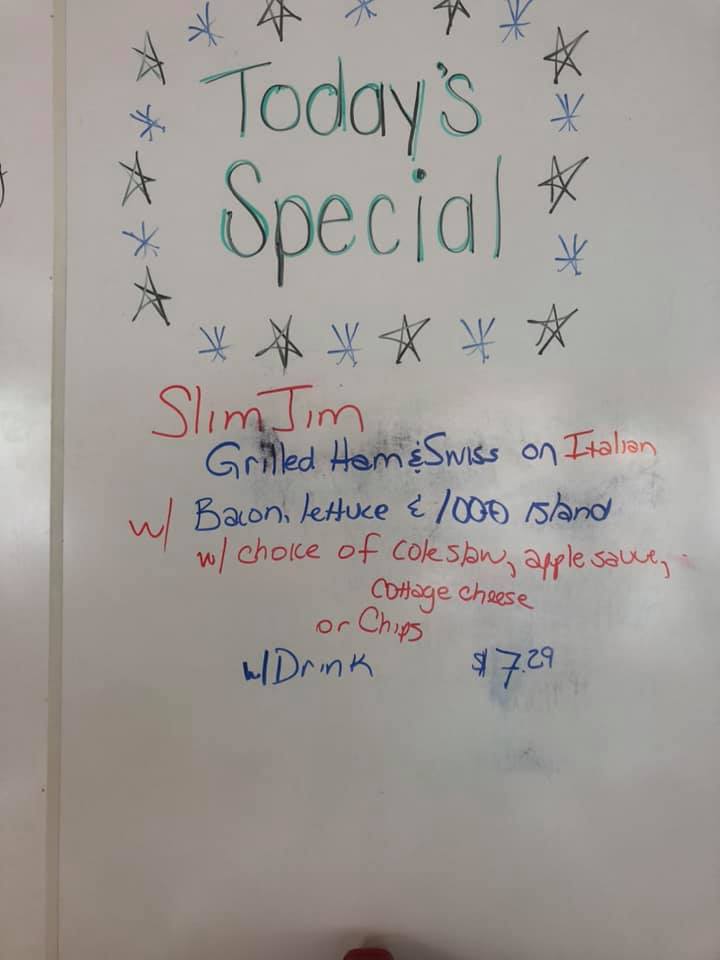 Today's
Special
Slim Jim
Grilled Ham & Swiss on Italian
w/ Bacon, lettuce & 1000 island
w/ choice of coleslaw, apple sauce,
cottage cheese
or Chips
w/ Drink $7.29